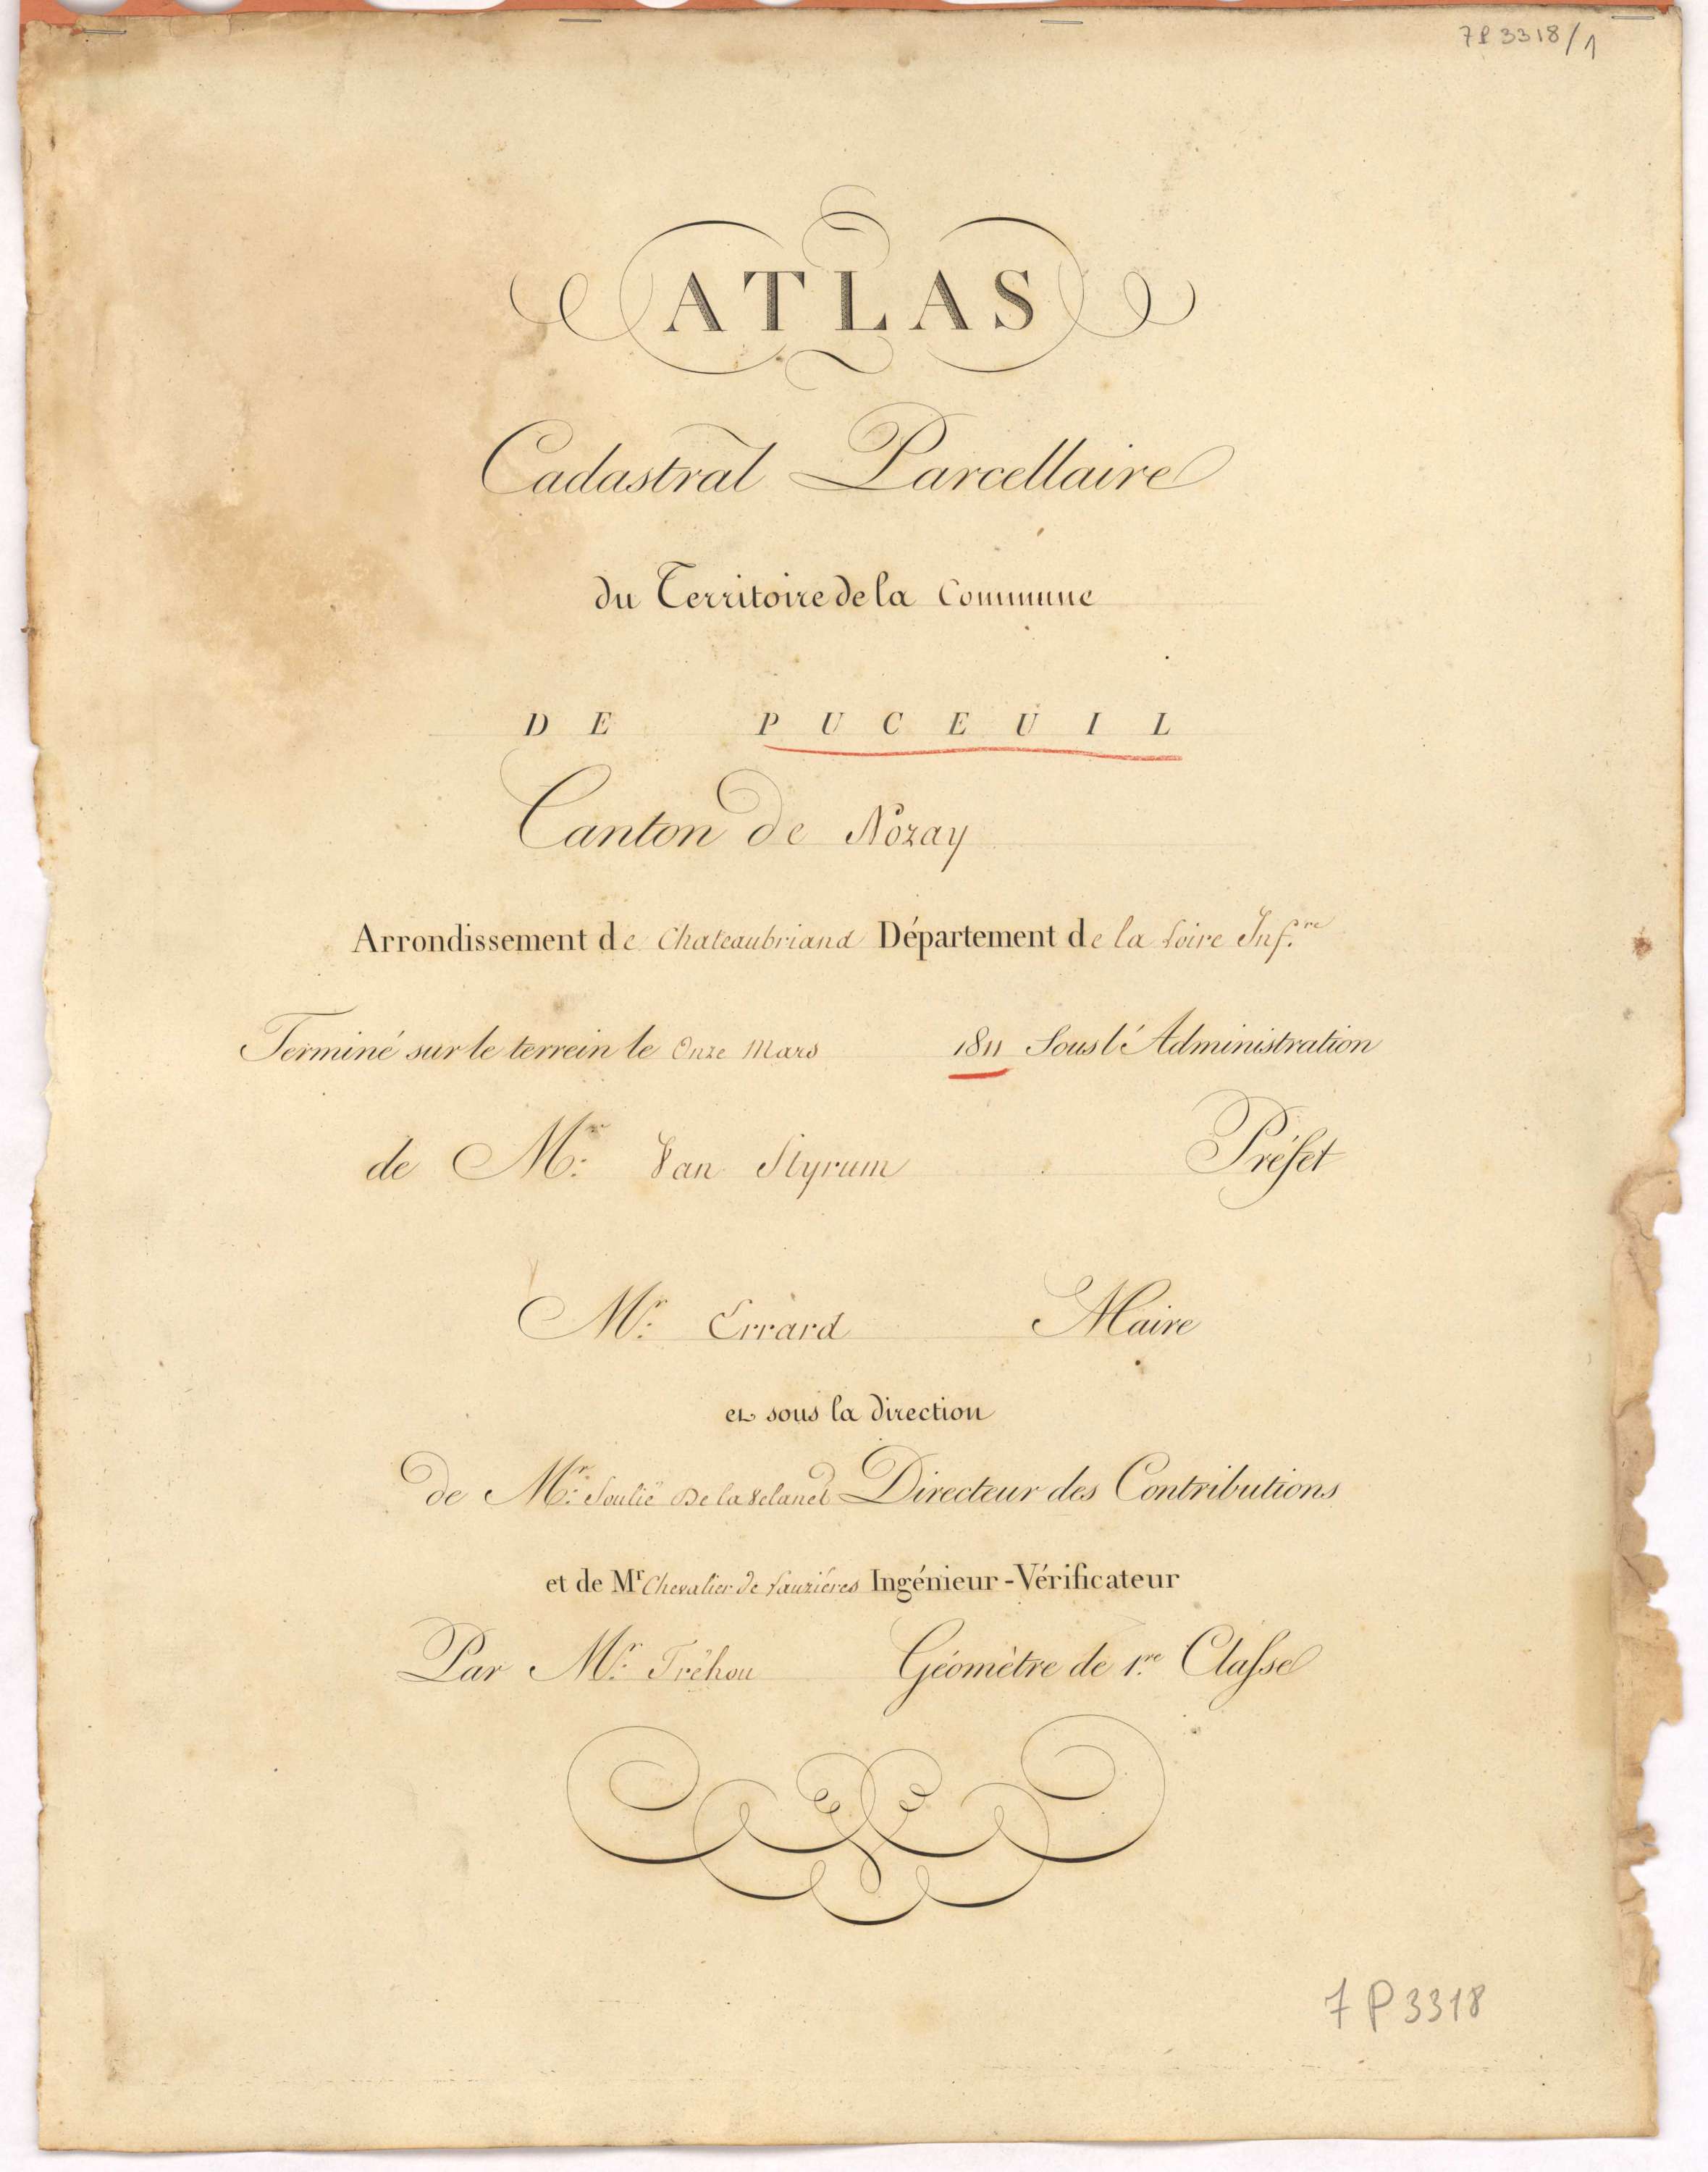 7P 3318/1
ATLAS
Cadastral Parcellaire
du Territoire de la Commune
DE PUCEUIL
Canton de Nozay
Arrondissement de Chateaubriand Département de la Loire Inf.re
Terminé sur le terrein le Onze Mars 1811 Sous l'Administration
de Mr. Van Styrum Préfet
Mr. Errard Maire
et sous la direction
de Mr. Soulié De la Directeur des Contributions
et de Mr Chevalier de Lauzières Ingénieur-Vérificateur
Par Mr. Tréhou Géomètre de 1.re Classe
7 P 3318